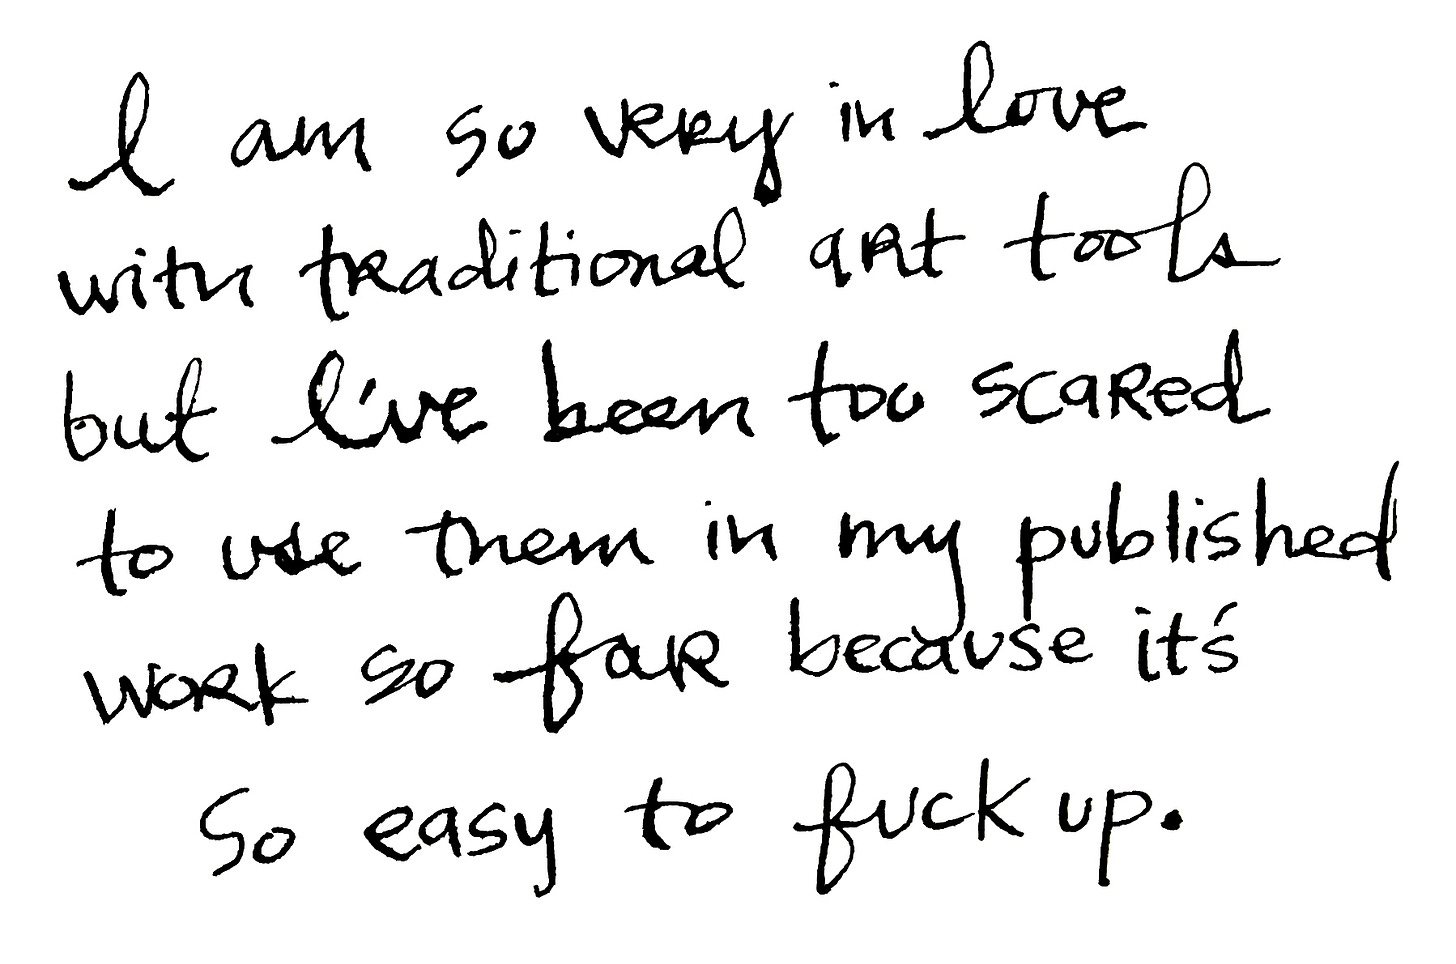 I am so very in love
with traditional art tools
but I've been too scared
to use them in my published
work so far because it's
so easy to fuck up.